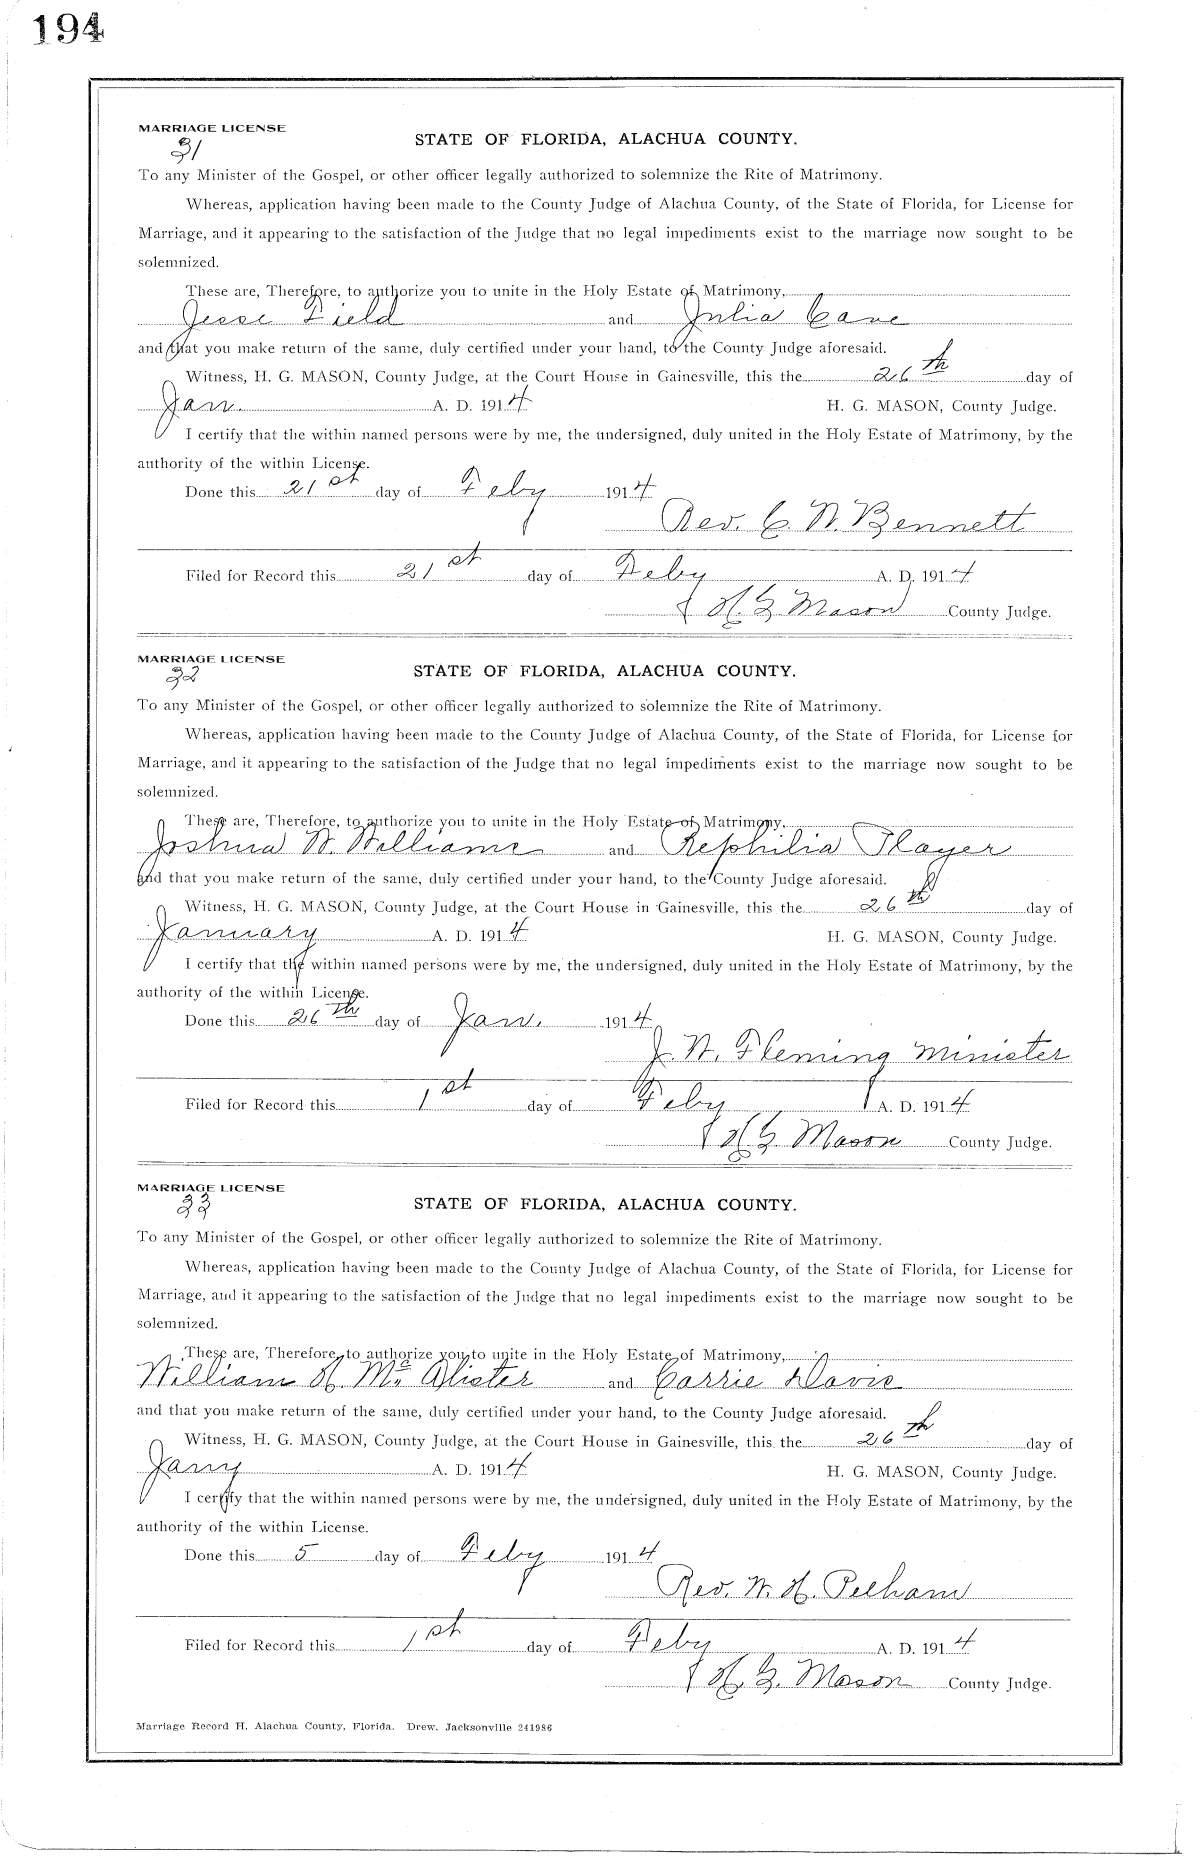 194
MARRIAGE LICENSE
31
STATE OF FLORIDA, ALACHUA COUNTY.
To any Minister of the Gospel, or other officer legally authorized to solemnize the Rite of Matrimony.
Whereas, application having been made to the County Judge of Alachua County, of the State of Florida, for License for
Marriage, and it appearing to the satisfaction of the Judge that no legal impediments exist to the marriage now sought to be
solemnized.
These are, Therefore, to authorize you to unite in the Holy Estate of Matrimony,
Jesse Field and Julia Cave
and that you make return of the same, duly certified under your hand, to the County Judge aforesaid.
Witness, H. G. MASON, County Judge, at the Court House in Gainesville, this the 26th day of
Jan. A. D. 1914 H. G. MASON, County Judge.
I certify that the within named persons were by me, the undersigned, duly united in the Holy Estate of Matrimony, by the
authority of the within License.
Done this 21st day of Feby 1914
Rev. C. N. Bennett
Filed for Record this 21st day of Feby A. D. 1914
H. G. Mason County Judge.
MARRIAGE LICENSE
32
STATE OF FLORIDA, ALACHUA COUNTY.
To any Minister of the Gospel, or other officer legally authorized to solemnize the Rite of Matrimony.
Whereas, application having been made to the County Judge of Alachua County, of the State of Florida, for License for
Marriage, and it appearing to the satisfaction of the Judge that no legal impediments exist to the marriage now sought to be
solemnized.
These are, Therefore, to authorize you to unite in the Holy Estate of Matrimony,
Joshua W. Williams and Rephilia Player
and that you make return of the same, duly certified under your hand, to the County Judge aforesaid.
Witness, H. G. MASON, County Judge, at the Court House in Gainesville, this the 26th day of
January A. D. 1914 H. G. MASON, County Judge.
I certify that the within named persons were by me, the undersigned, duly united in the Holy Estate of Matrimony, by the
authority of the within License.
Done this 26th day of Jan. 1914
J. W. Fleming Minister
Filed for Record this 1st day of Feby A. D. 1914
H G Mason County Judge.
MARRIAGE LICENSE
33
STATE OF FLORIDA, ALACHUA COUNTY.
To any Minister of the Gospel, or other officer legally authorized to solemnize the Rite of Matrimony.
Whereas, application having been made to the County Judge of Alachua County, of the State of Florida, for License for
Marriage, and it appearing to the satisfaction of the Judge that no legal impediments exist to the marriage now sought to be
solemnized.
These are, Therefore, to authorize you to unite in the Holy Estate of Matrimony,
William H. Mc Alister and Carrie Davis
and that you make return of the same, duly certified under your hand, to the County Judge aforesaid.
Witness, H. G. MASON, County Judge, at the Court House in Gainesville, this the 26th day of
Jany A. D. 1914 H. G. MASON, County Judge.
I certify that the within named persons were by me, the undersigned, duly united in the Holy Estate of Matrimony, by the
authority of the within License.
Done this 5 day of Feby 1914
Rev. W. H. Pelham
Filed for Record this 1st day of Feby A. D. 1914
H. G. Mason County Judge.
Marriage Record H. Alachua County, Florida. Drew, Jacksonville 241986